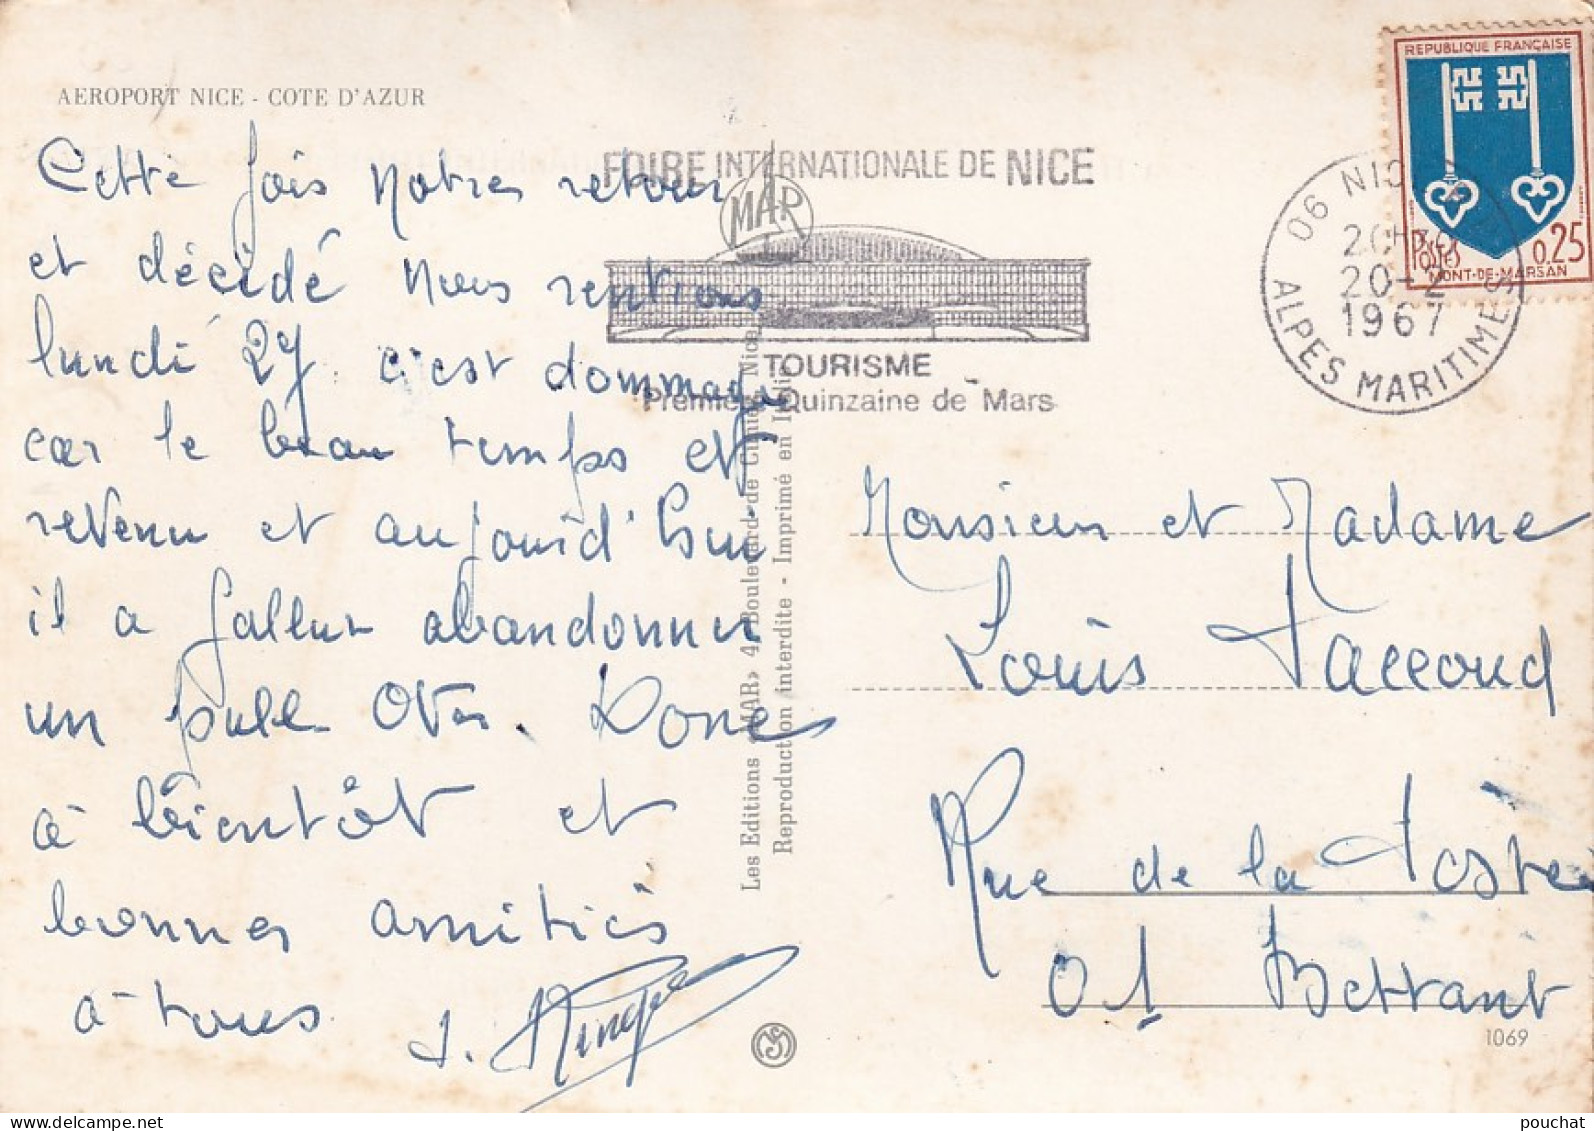 AEROPORT NICE - COTE D'AZUR
Cette fois notre retour
et décidé nous rentrons
lundi 27 c'est dommage
car le beau temps et
revenu et aujourd'hui
il a fallu abandonner
un pull over. Donc
à bientôt et
bonnes amitiés
à tous
FOIRE INTERNATIONALE DE NICE
MAR
TOURISME
Première Quinzaine de Mars
Les Editions «MAR» 4, Boulevard de Cimiez Nice
Reproduction interdite - Imprimé en Italie
REPUBLIQUE FRANÇAISE
POSTES
0,25
MONT-DE-MARSAN
06 NICE
20-2
1967
ALPES MARITIMES
Monsieur et Madame
Louis Taccoud
Rue de la Poste
01 Bettant
1069
pouchat